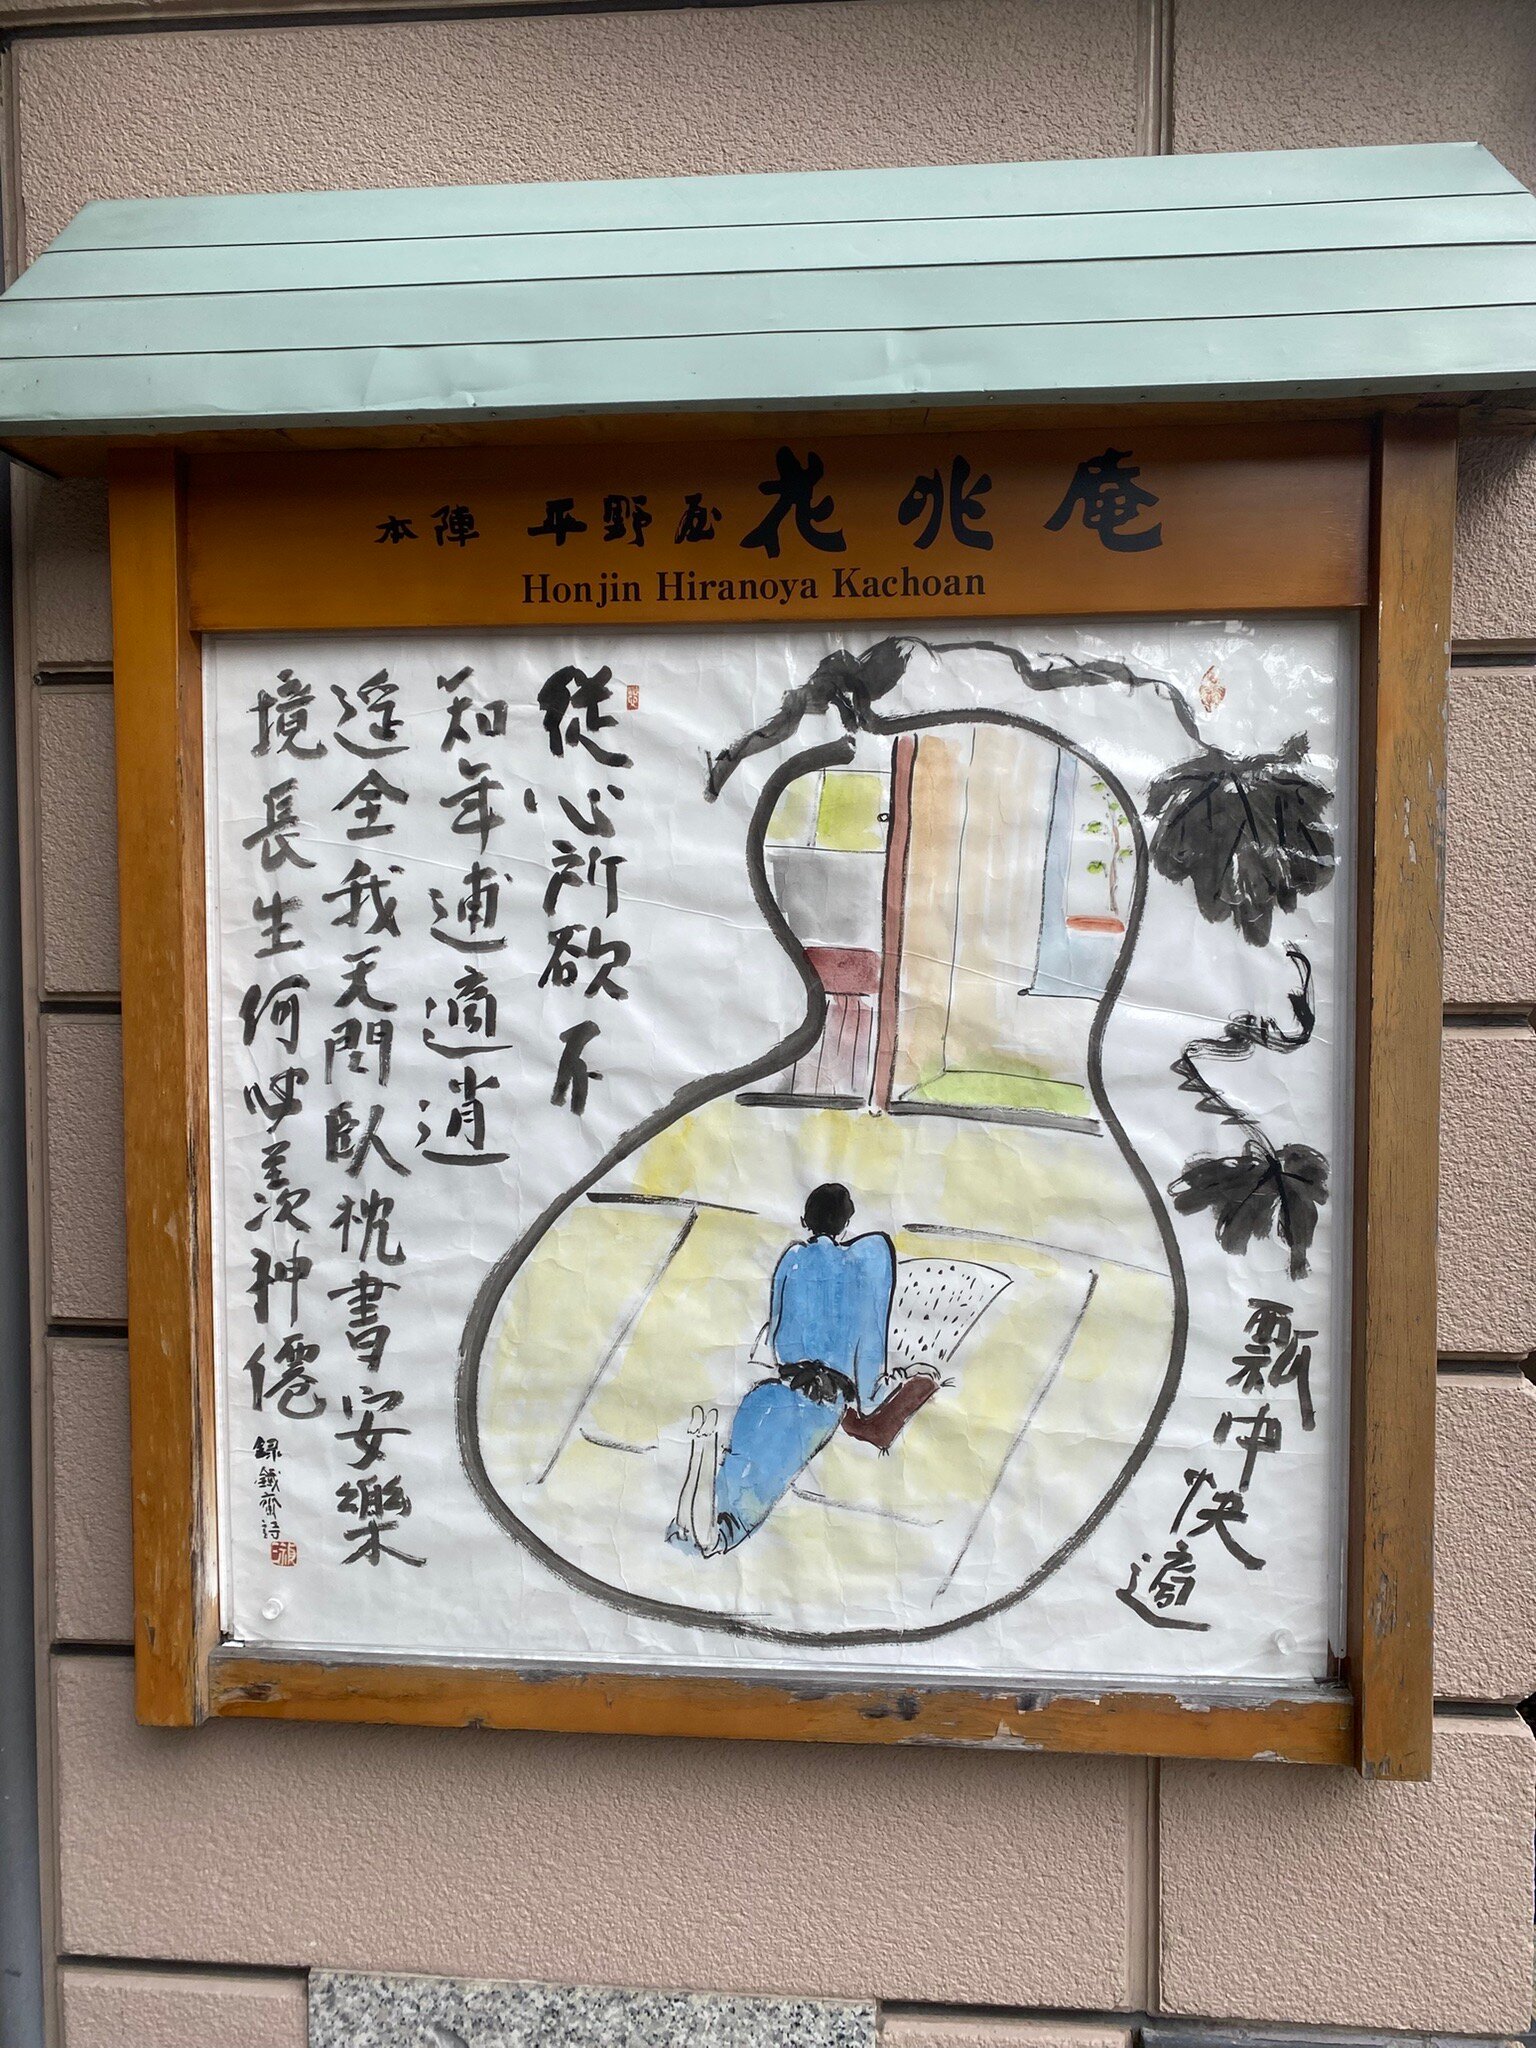 本陣 平野屋 花兆庵
Honjin Hiranoya Kachoan
瓢中快適
從心所欲不
知年逋適逍
遥全我天閒臥枕書安樂
境長生何羨神僊
録鐵齋詩